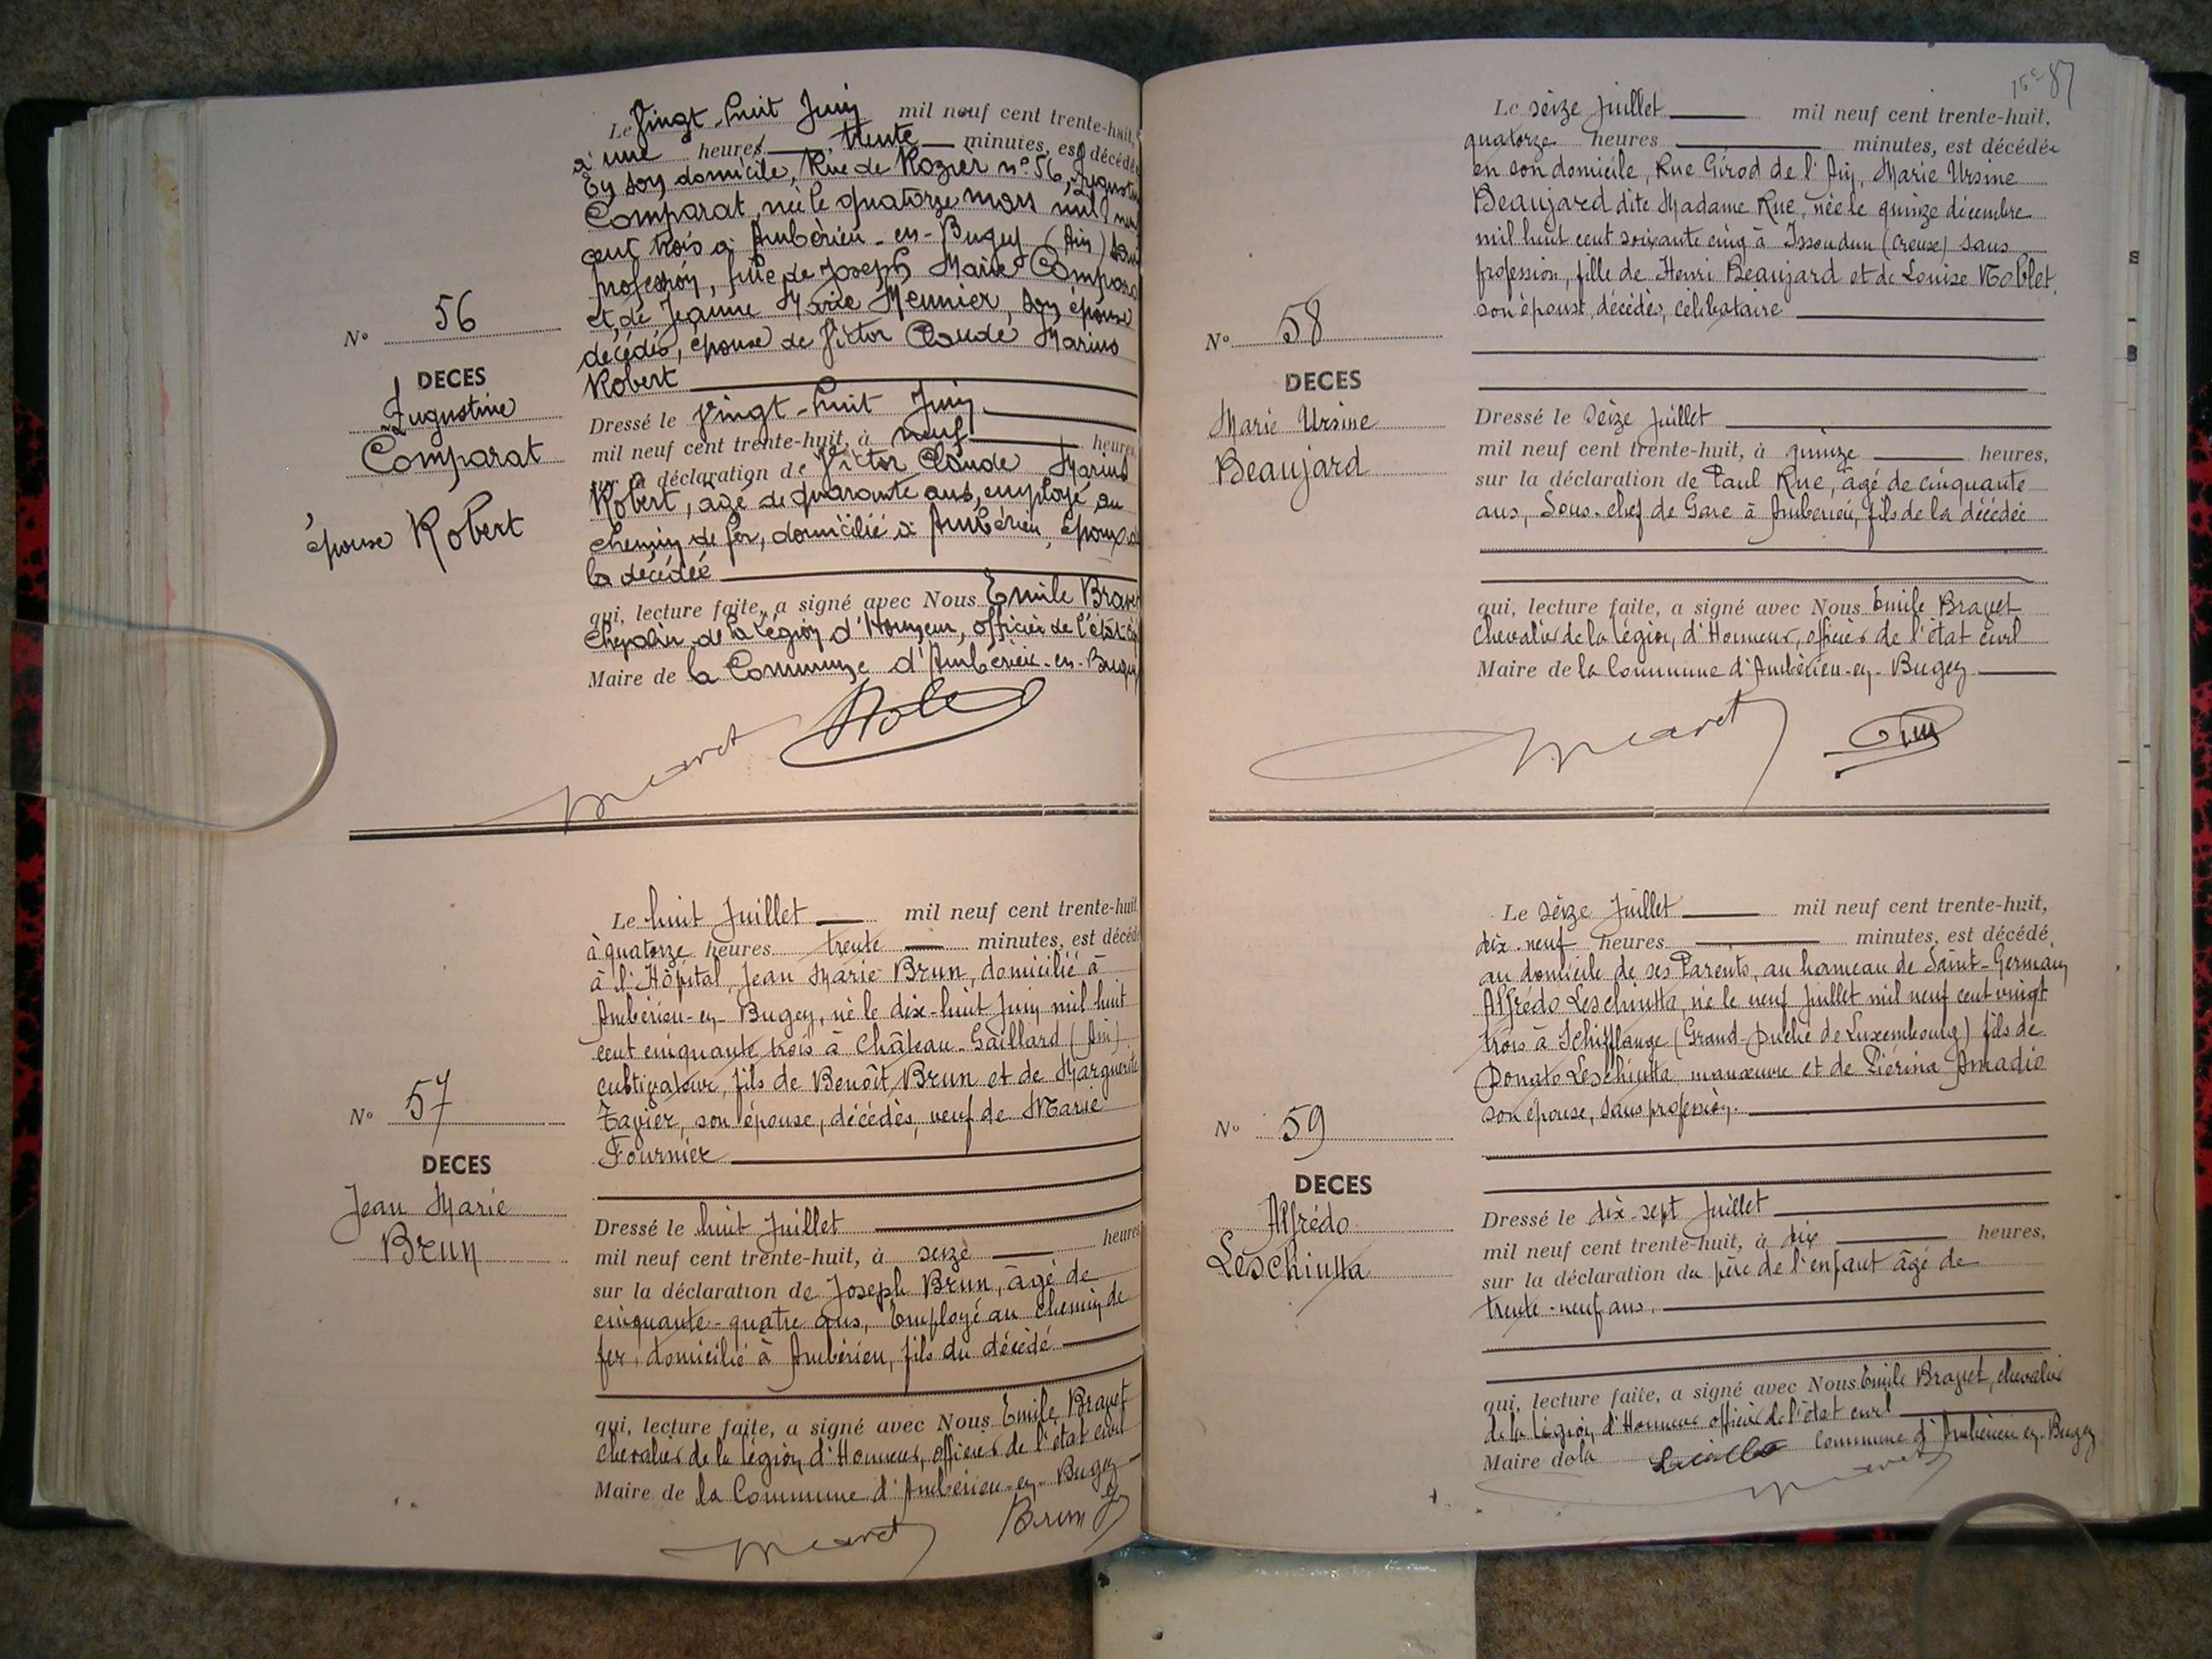 Le Vingt-huit Juin mil neuf cent trente-huit,
à une heures trente minutes, est décédée
En son domicile, Rue de Rozier n° 56, Augustine
Comparat, née le quatorze mars mil neuf
cent trois à Ambérieu-en-Bugey (Ain) sans
profession, fille de Joseph Marie Comparat
et de Jeanne Marie Meunier, son épouse
décédés, épouse de Victor Claude Marius
Robert
N° 56
DECES
Augustine
Comparat
épouse Robert
Dressé le Vingt-huit Juin
mil neuf cent trente-huit, à neuf heures
sur la déclaration de Victor Claude Marius
Robert, âgé de quarante ans, employé au
chemin de fer, domicilié à Ambérieu, époux de
la décédée
qui, lecture faite, a signé avec Nous Emile Bravet
Chevalier de la Légion d'Honneur, officier de l'état civil
Maire de la Commune d'Ambérieu-en-Bugey
Le huit Juillet mil neuf cent trente-huit
à quatorze heures trente minutes, est décédé
à l'Hôpital, Jean Marie Brun, domicilié à
Ambérieu-en-Bugey, né le dix-huit Juin mil huit
cent cinquante trois à Château-Gaillard (Ain)
cultivateur, fils de Benoît Brun et de Marguerite
Tavier, son épouse, décédés, veuf de Marie
Fournier
N° 57
DECES
Jean Marie
Brun
Dressé le huit Juillet
mil neuf cent trente-huit, à seize heures
sur la déclaration de Joseph Brun, âgé de
cinquante-quatre ans, Employé au chemin de
fer, domicilié à Ambérieu, fils du décédé
qui, lecture faite, a signé avec Nous Emile Bravet
Chevalier de la Légion d'Honneur, officier de l'état civil
Maire de la Commune d'Ambérieu-en-Bugey
Brun
87
Le seize Juillet mil neuf cent trente-huit,
quatorze heures minutes, est décédée
en son domicile, Rue Girod de l'Ain, Marie Ursine
Beaujard dite Madame Rue, née le quinze décembre
mil huit cent soixante cinq à Issoudun (Creuse) sans
profession, fille de Henri Beaujard et de Louise Noblet,
son épouse, décédés, célibataire
N° 58
DECES
Marie Ursine
Beaujard
Dressé le Seize Juillet
mil neuf cent trente-huit, à quinze heures,
sur la déclaration de Paul Rue, âgé de cinquante
ans, Sous-chef de Gare à Ambérieu, fils de la décédée
qui, lecture faite, a signé avec Nous Emile Bravet
Chevalier de la Légion d'Honneur, officier de l'état civil
Maire de la Commune d'Ambérieu-en-Bugey
Le seize Juillet mil neuf cent trente-huit,
dix-neuf heures minutes, est décédé,
au domicile de ses Parents, au hameau de Saint-Germain,
Alfrédo Leschiutta, né le neuf Juillet mil neuf cent vingt
trois à Schifflange (Grand-Duché de Luxembourg) fils de
Donato Leschiutta manœuvre et de Piérina Amadio
son épouse, sans profession.
N° 59
DECES
Alfrédo
Leschiutta
Dressé le dix-sept Juillet
mil neuf cent trente-huit, à dix heures,
sur la déclaration du père de l'enfant âgé de
trente-neuf ans.
qui, lecture faite, a signé avec Nous Emile Bravet, chevalier
de la Légion d'Honneur officier de l'état civil
Maire de la Commune d'Ambérieu en-Bugey